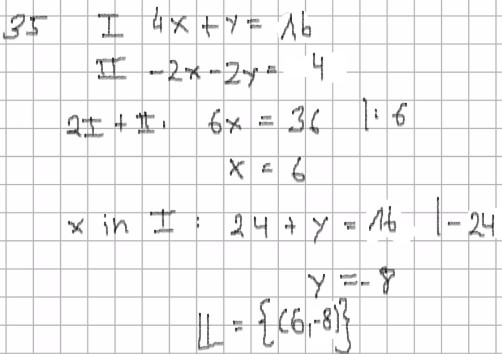 35 I 4x + y = 16
II -2x - 2y = 4
2I + II: 6x = 36 |: 6
x = 6
x in I: 24 + y = 16 |- 24
y = -8
𝕃 = {(6,-8)}